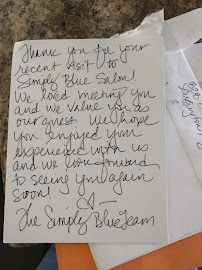 Thank you for your
recent visit to
Simply Blue Salon!
We loved meeting you
and we value you as
our guest. We hope
you enjoyed your
experience with us
and we look forward
to seeing you again
soon!
The Simply Blue Team